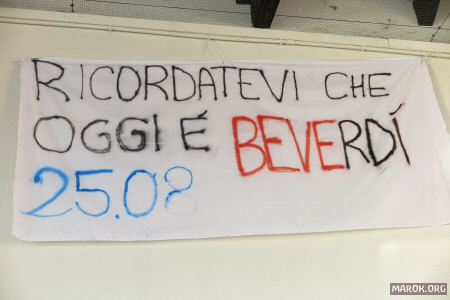 RICORDATEVI CHE
OGGI É BEVERDÍ
25.08
MAROK.ORG